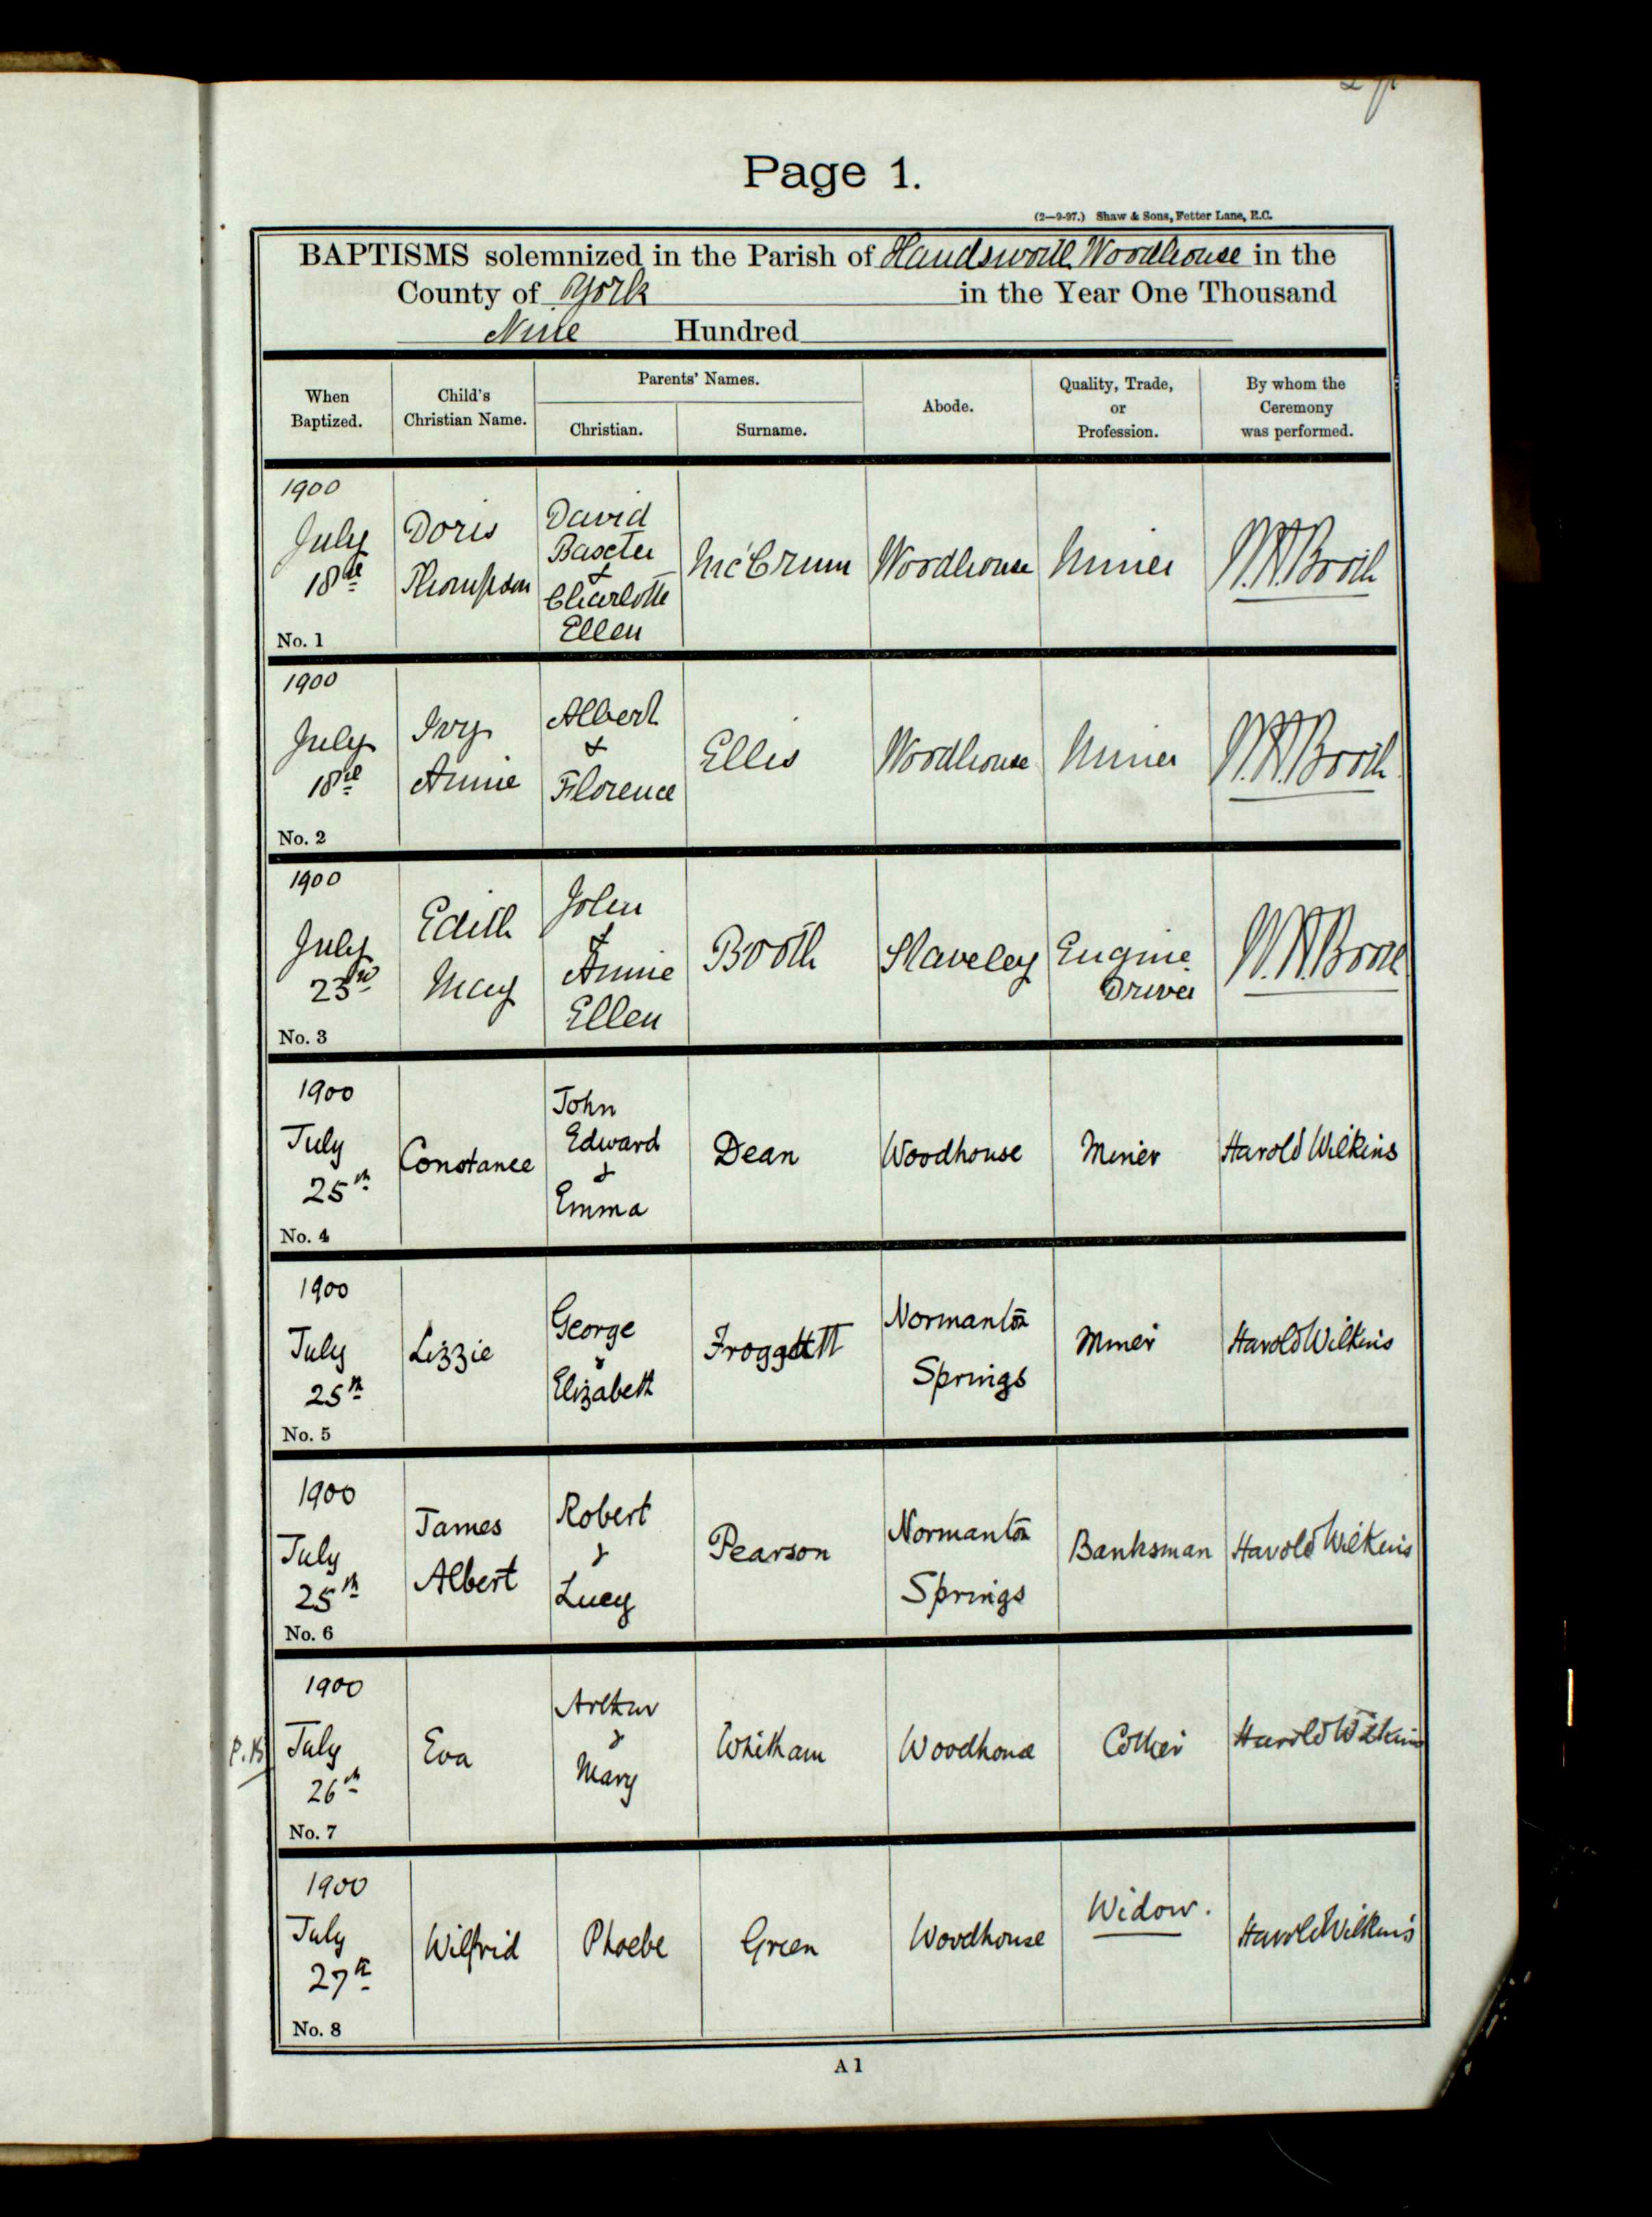 Page 1.
(2—9-97.) Shaw & Sons, Fetter Lane, E.C.
BAPTISMS solemnized in the Parish of Handsworth Woodhouse in the
County of York in the Year One Thousand
Nine Hundred
When Baptized.
Child's Christian Name.
Parents' Names.
Christian.
Surname.
Abode.
Quality, Trade, or Profession.
By whom the Ceremony was performed.
1900
July
18th
No. 1
Doris
Thompson
David
Baxter
&
Charlotte
Ellen
McCrum
Woodhouse
Miner
W.H. Booth
1900
July
18th
No. 2
Ivy
Annie
Albert
&
Florence
Ellis
Woodhouse
Miner
W.H. Booth
1900
July
23rd
No. 3
Edith
May
John
&
Annie
Ellen
Booth
Staveley
Engine
Driver
W.H. Booth
1900
July
25th
No. 4
Constance
John
Edward
&
Emma
Dean
Woodhouse
Miner
Harold Wilkins
1900
July
25th
No. 5
Lizzie
George
&
Elizabeth
Froggatt
Normanton
Springs
Miner
Harold Wilkins
1900
July
25th
No. 6
James
Albert
Robert
&
Lucy
Pearson
Normanton
Springs
Banksman
Harold Wilkins
P.B
1900
July
26th
No. 7
Eva
Arthur
&
Mary
Whitham
Woodhouse
Harold Wilkins
1900
July
27th
No. 8
Wilfrid
Phoebe
Green
Woodhouse
Widow.
Harold Wilkins
A 1